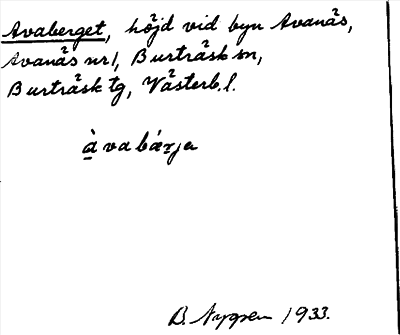 Avaberget, höjd vid byn Avanäs,
Avanäs nr 1, Burträsk sn,
Burträsk tg, Västerb. l.
àvabárja
B. Nygren 1933.